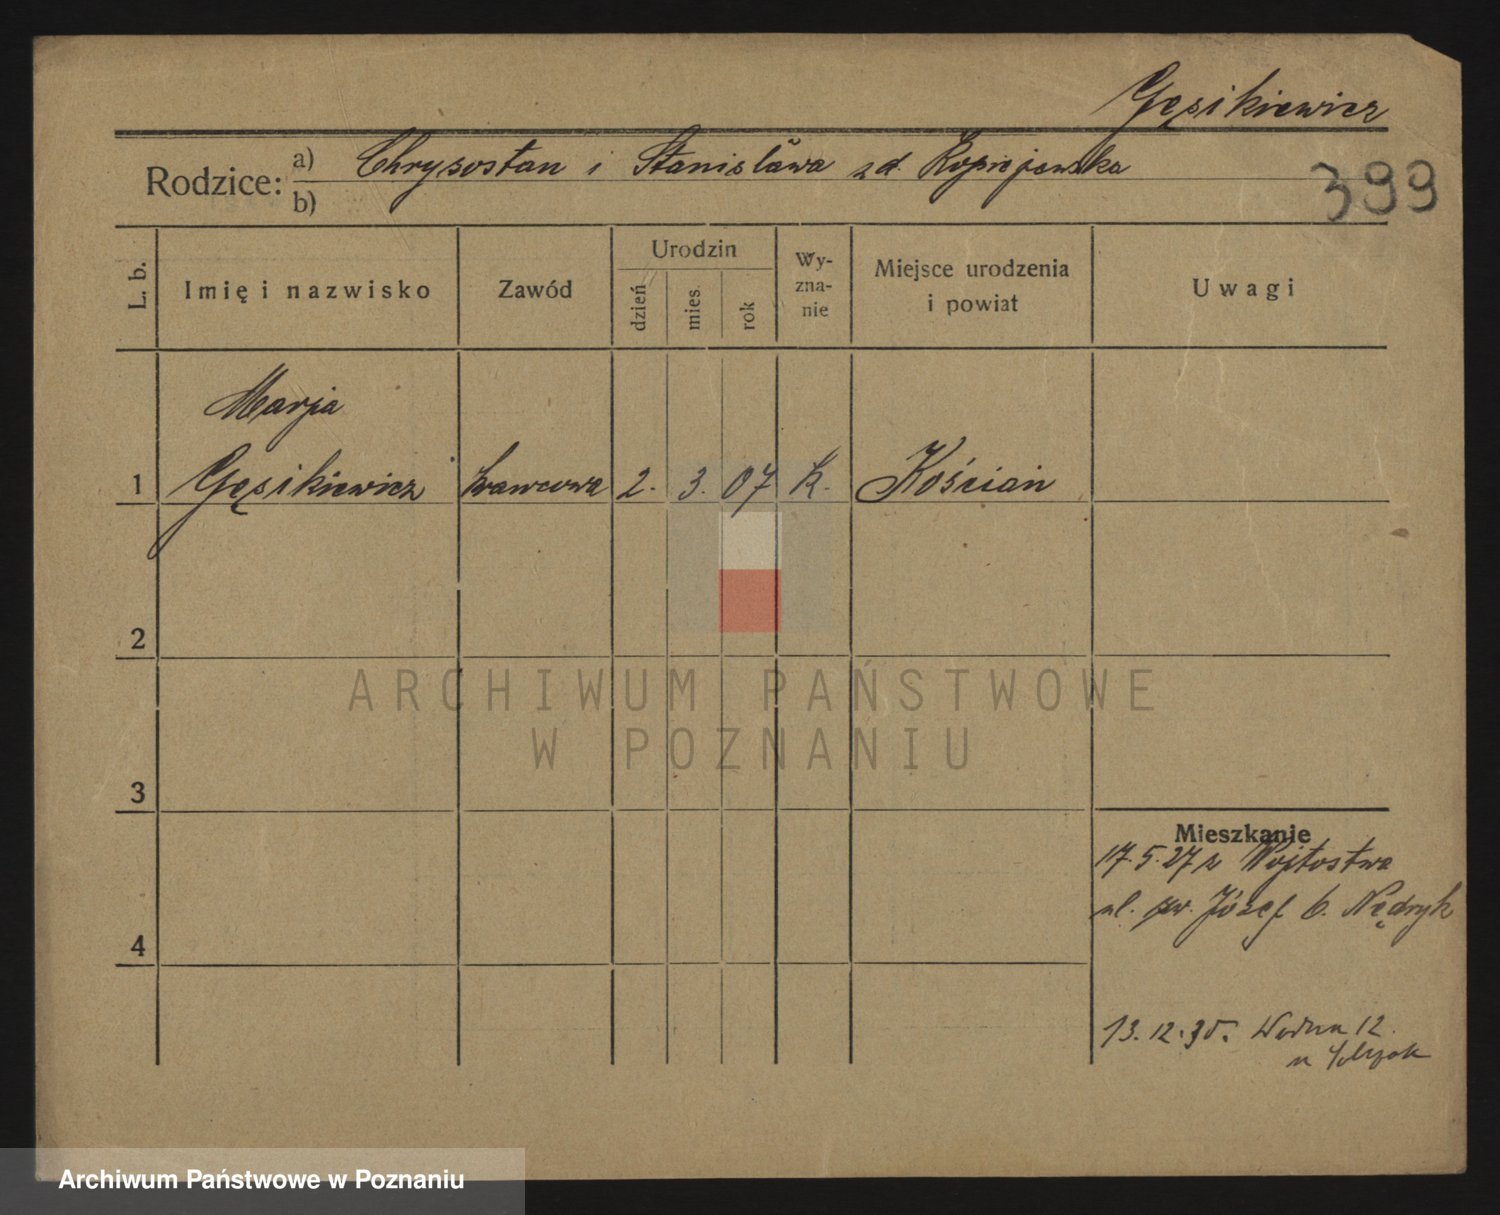 Gęsikiewicz
Rodzice: a) Chrysostan i Stanisława zd. Kopiejewska
b)
399
L. b.
Imię i nazwisko
Zawód
Urodzin
dzień
mies.
rok
Wy-
zna-
nie
Miejsce urodzenia
i powiat
Uwagi
Marja
1 Gęsikiewicz krawcowa 2. 3. 07 k. Kościan
2
3
4
Mieszkanie
17.5.27 z Wójtostwa
ul. św. Józef 6. Nędryk
13.12.35. Wodna 12.
u
ARCHIWUM PAŃSTWOWE
W POZNANIU
Archiwum Państwowe w Poznaniu